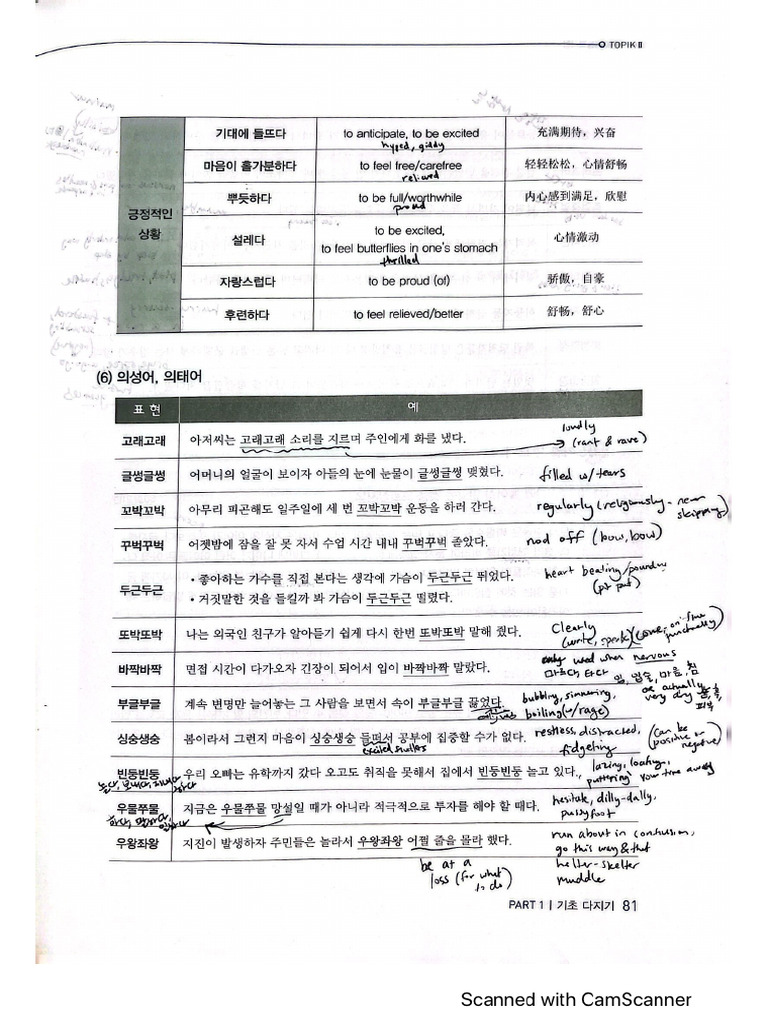 TOPIK II
긍정적인
상황
기대에 들뜨다 to anticipate, to be excited 充满期待，兴奋
hyped, giddy
마음이 홀가분하다 to feel free/carefree 轻轻松松，心情舒畅
relieved
뿌듯하다 to be full/worthwhile 内心感到满足，欣慰
proud
설레다 to be excited, to feel butterflies in one's stomach 心情激动
thrilled
자랑스럽다 to be proud (of) 骄傲，自豪
후련하다 to feel relieved/better 舒畅，舒心
(6) 의성어, 의태어
표현 예
고래고래 아저씨는 고래고래 소리를 지르며 주인에게 화를 냈다.
loudly
(rant & rave)
글썽글썽 어머니의 얼굴이 보이자 아들의 눈에 눈물이 글썽글썽 맺혔다.
filled w/tears
꼬박꼬박 아무리 피곤해도 일주일에 세 번 꼬박꼬박 운동을 하러 간다.
regularly (religiously - never
skipping)
꾸벅꾸벅 어젯밤에 잠을 잘 못 자서 수업 시간 내내 꾸벅꾸벅 졸았다.
nod off (bow, bow)
두근두근 • 좋아하는 가수를 직접 본다는 생각에 가슴이 두근두근 뛰었다.
• 거짓말한 것을 들킬까 봐 가슴이 두근두근 떨렸다.
heart beating/pounding
(pit pat)
또박또박 나는 외국인 친구가 알아듣기 쉽게 다시 한번 또박또박 말해 줬다.
Clearly
(write, speak) (come on-time
punctually)
바짝바짝 면접 시간이 다가오자 긴장이 되어서 입이 바짝바짝 말랐다.
only used when nervous
마르다 타다
입, 입술, 마음, 침
or actually
very dry
피부
부글부글 계속 변명만 늘어놓는 그 사람을 보면서 속이 부글부글 끓었다.
bubbling, simmering,
boiling (w/rage)
싱숭생숭 봄이라서 그런지 마음이 싱숭생숭 들떠서 공부에 집중할 수가 없다.
excited
restless, distracted,
fidgeting
(can be
positive or
negative)
빈둥빈둥 우리 오빠는 유학까지 갔다 오고도 취직을 못해서 집에서 빈둥빈둥 놀고 있다.
lazing, loafing,
puttering your time away
우물쭈물 지금은 우물쭈물 망설일 때가 아니라 적극적으로 투자를 해야 할 때다.
hesitate, dilly-dally,
pussyfoot
우왕좌왕 지진이 발생하자 주민들은 놀라서 우왕좌왕 어쩔 줄을 몰라 했다.
be at a
loss (for what
to do)
run about in confusion,
go this way & that
helter-skelter
muddle
PART 1 | 기초 다지기 81
Scanned with CamScanner